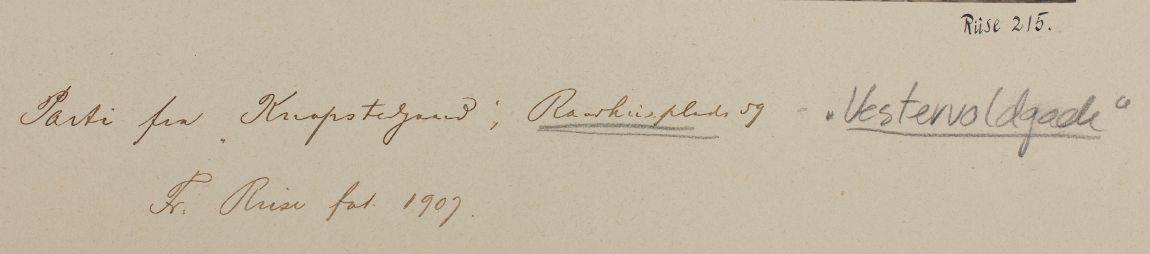 Riise 215.
Parti fra „Knapstedgaard“, Raadhusplads 59 - „Vestervoldgade“
Fr. Riise fot. 1907.